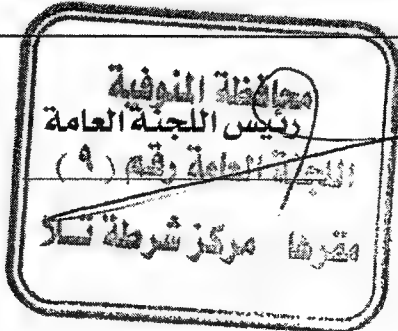 محافظة المنوفية
رئيس اللجنة العامة
اللجنة العامة رقم (٩)
مقرها مركز شرطة تلا